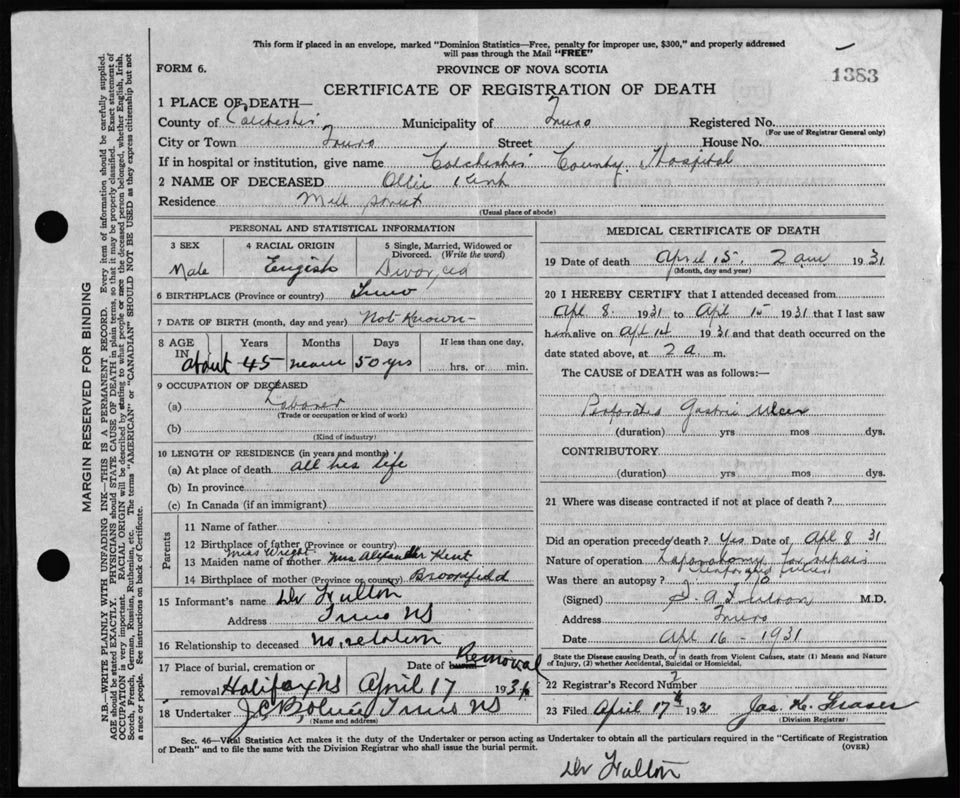 This form if placed in an envelope, marked "Dominion Statistics—Free, penalty for improper use, $300," and properly addressed
will pass through the Mail "FREE"
FORM 6.
PROVINCE OF NOVA SCOTIA
1383
CERTIFICATE OF REGISTRATION OF DEATH
1 PLACE OF DEATH—
County of Colchester Municipality of Truro Registered No.
(For use of Registrar General only)
City or Town Truro Street House No.
If in hospital or institution, give name Colchester County Hospital
2 NAME OF DECEASED Ollie Kent
Residence Mill Street
(Usual place of abode)
PERSONAL AND STATISTICAL INFORMATION
3 SEX 4 RACIAL ORIGIN 5 Single, Married, Widowed or
Divorced. (Write the word)
Male English Divorced
6 BIRTHPLACE (Province or country) Truro
7 DATE OF BIRTH (month, day and year) Not Known
8 AGE Years Months Days If less than one day,
IN about 45 nearer 50 yrs hrs. or min.
9 OCCUPATION OF DECEASED
(a) Laborer
(Trade or occupation or kind of work)
(b)
(Kind of industry)
10 LENGTH OF RESIDENCE (in years and months)
(a) At place of death all his life
(b) In province
(c) In Canada (if an immigrant)
Parents
11 Name of father
12 Birthplace of father (Province or country)
Miss Wright
13 Maiden name of mother Mrs Alexander Kent
14 Birthplace of mother (Province or country) Broomfield
15 Informant's name Dr Fulton
Address Truro NS
16 Relationship to deceased no, relation
17 Place of burial, cremation or Date of burial Removal
removal Halifax NS April 17 1931
18 Undertaker Truro NS
(Name and address)
MEDICAL CERTIFICATE OF DEATH
19 Date of death April 15. 2 am 1931
(Month, day and year)
20 I HEREBY CERTIFY that I attended deceased from
Apl 8 1931 to Apl 15 1931 that I last saw
him alive on Apl 14 1931 and that death occurred on the
date stated above, at 2 a. m.
The CAUSE of DEATH was as follows:—
Perforated Gastric Ulcer
(duration) yrs mos dys.
CONTRIBUTORY
(duration) yrs mos dys.
21 Where was disease contracted if not at place of death?
Did an operation precede death? Yes Date of Apl 8 31
Nature of operation Laparotomy for repair
perforated ulcer
Was there an autopsy? no
(Signed) Fulton M.D.
Address Truro
Date Apl 16 - 1931
State the Disease causing Death, or in death from Violent Causes, state (1) Means and Nature
of Injury, (2) whether Accidental, Suicidal or Homicidal.
22 Registrar's Record Number
23 Filed April 17th 1931 Jas. K. Fraser
(Division Registrar)
Sec. 46—Vital Statistics Act makes it the duty of the Undertaker or person acting as Undertaker to obtain all the particulars required in the "Certificate of Registration
of Death" and to file the same with the Division Registrar who shall issue the burial permit.
(OVER)
Dr Fulton
MARGIN RESERVED FOR BINDING
N.B.—WRITE PLAINLY WITH UNFADING INK—THIS IS A PERMANENT RECORD. Every item of information should be carefully supplied.
AGE should be stated EXACTLY. PHYSICIANS should STATE CAUSE OF DEATH in plain terms, so that it may be properly classified. Exact statement of
OCCUPATION is very important. RACIAL ORIGIN will be described by stating to what people or race the deceased person belonged, whether English, Irish,
Scotch, French, German, Russian, Ruthenian, etc. The terms "AMERICAN" or "CANADIAN" SHOULD NOT BE USED as they express citizenship but not
a race or people. See instructions on back of Certificate.